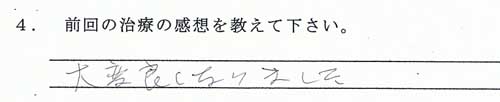 4. 前回の治療の感想を教えて下さい。
大変良くなりました